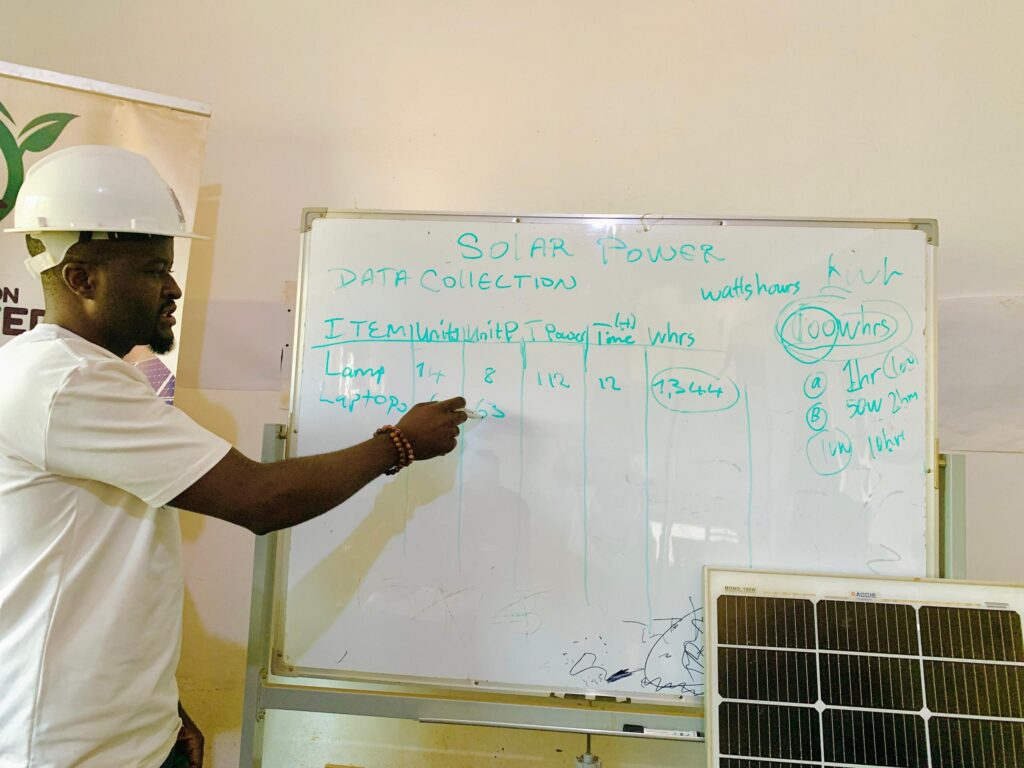 SOLAR POWER
DATA COLLECTION
watts hours
ITEM Units Unit P T Power Time (H) Whrs
Lamp 14 8 112 12 1,344
Laptops 63
100 whrs
a 1hr (100)
B 50W 2hrs
10W 10hr
ON
MONO 180W